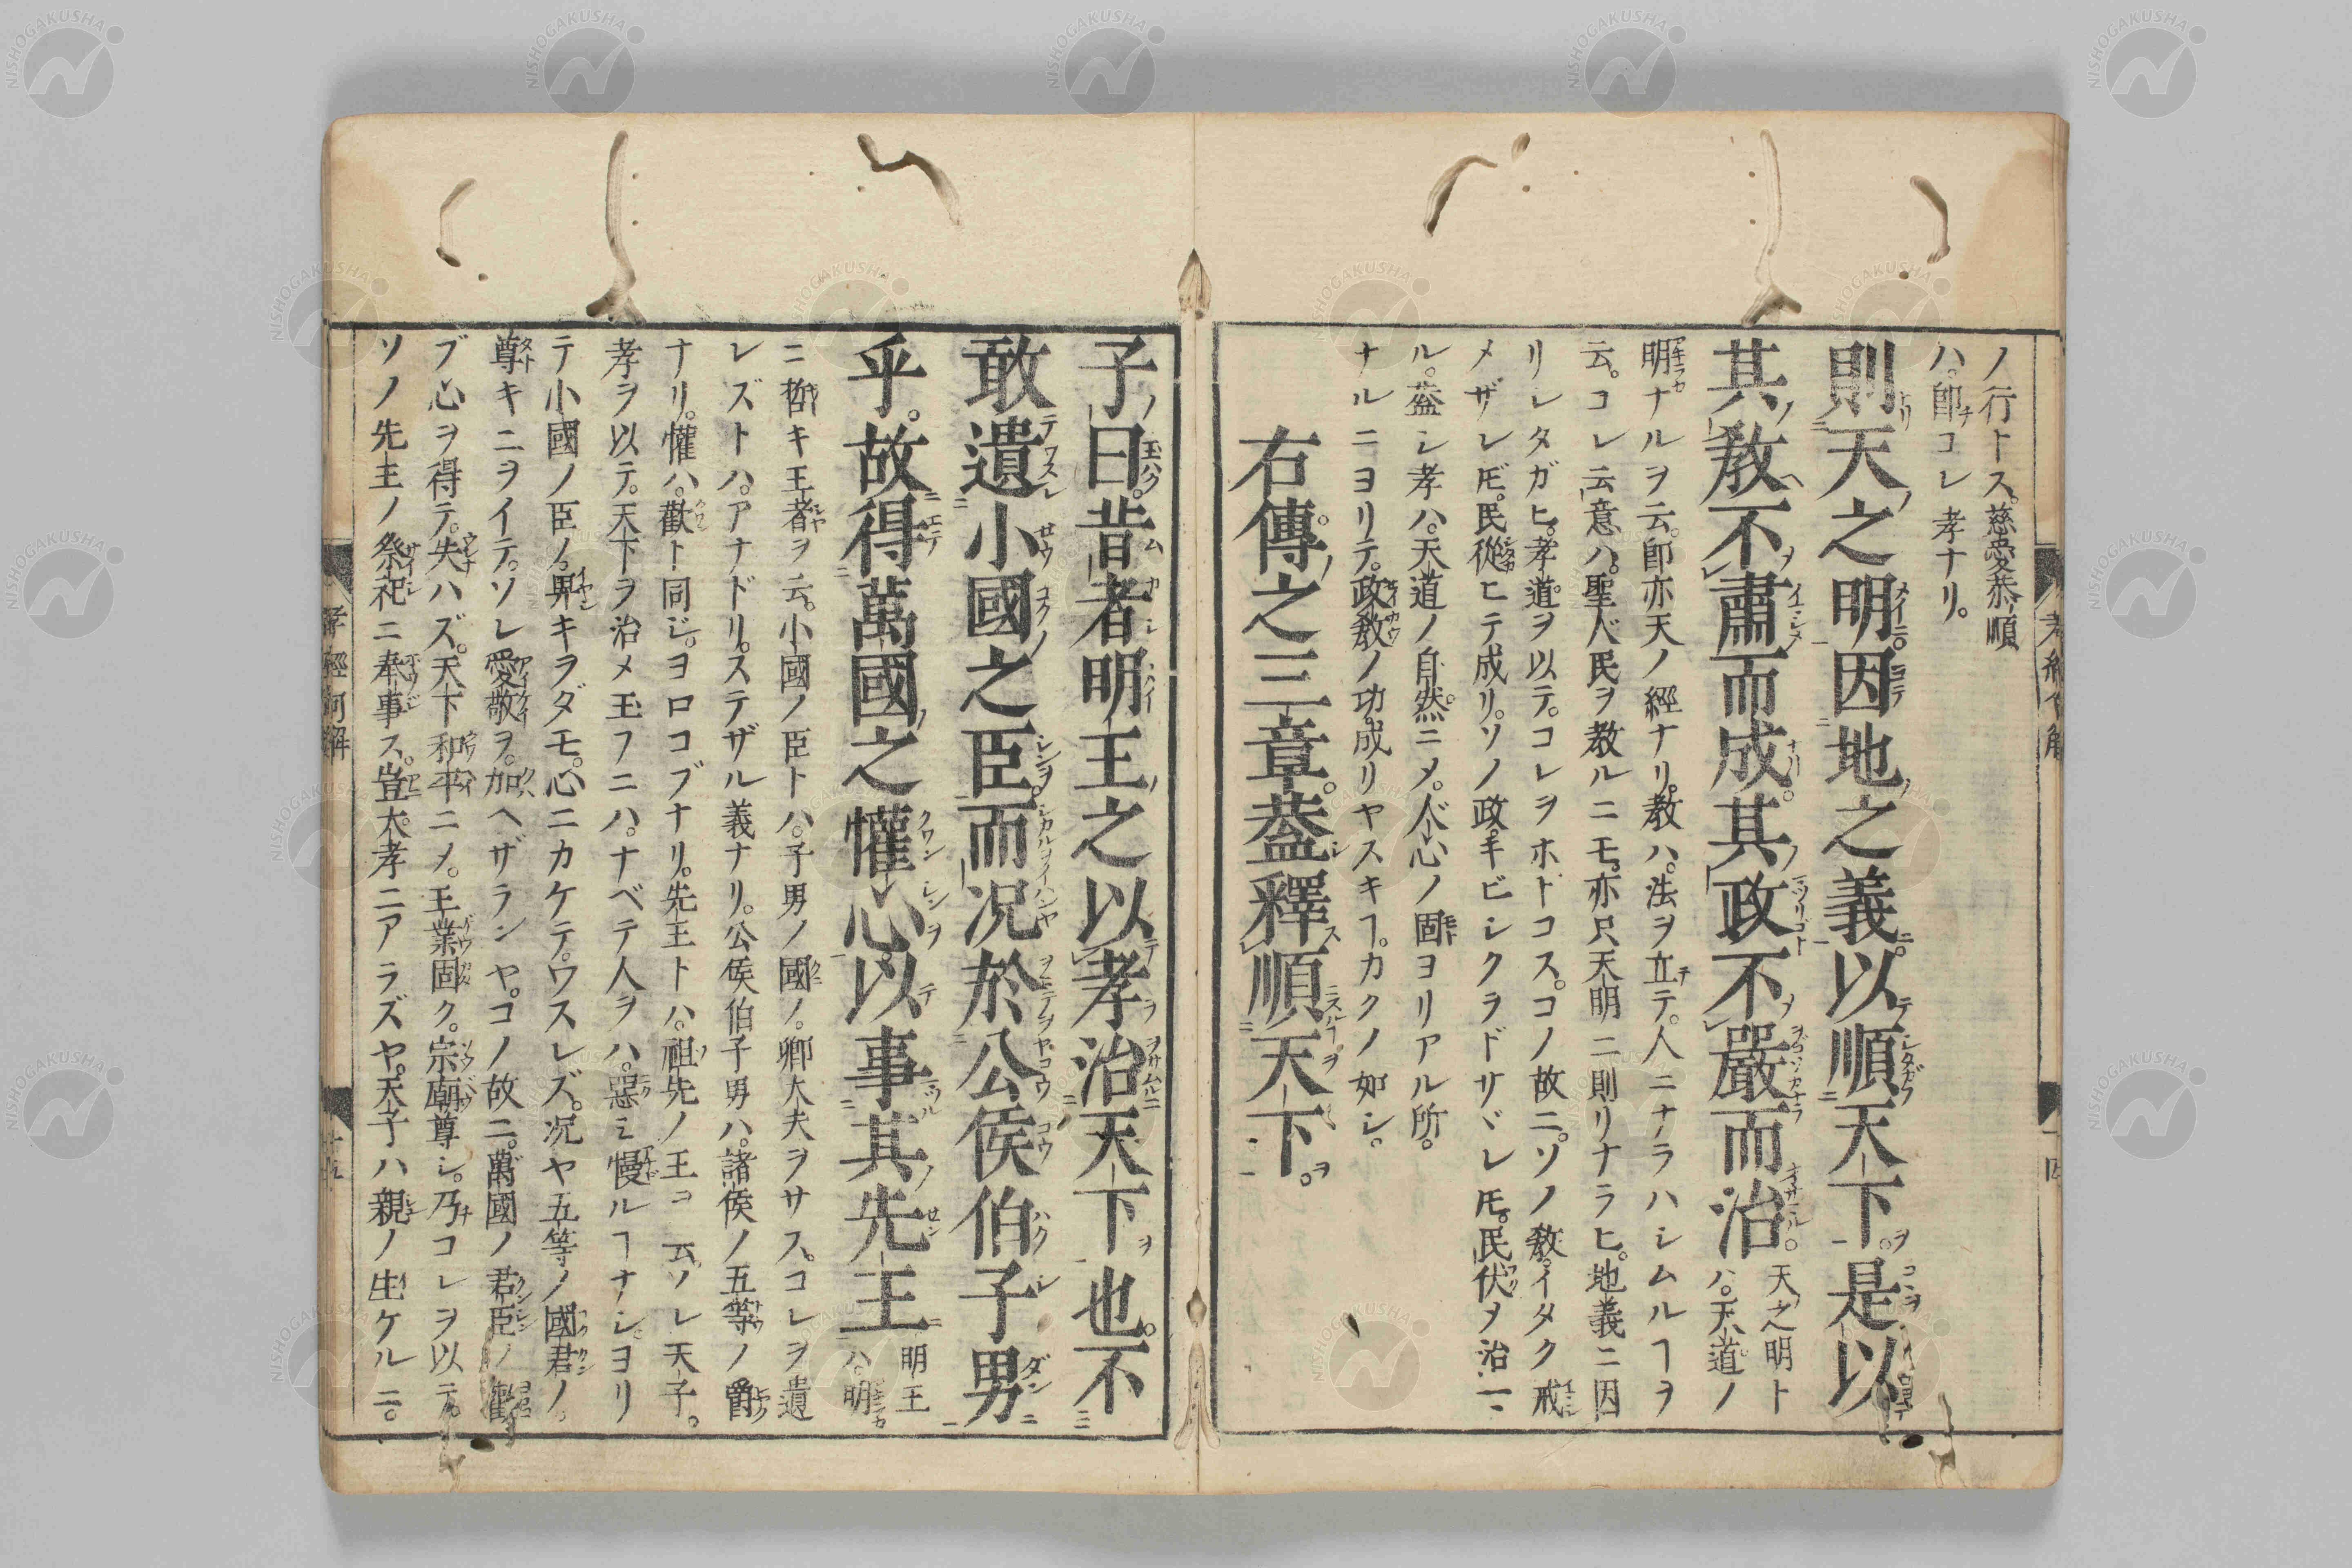 ノ行トス。慈愛恭順
ハ。即コレ孝ナリ。
則天之明因地之義以順天下。是以
其教不肅而成。其政不嚴而治。
天之明ト
ハ。天道ノ
明ナルヲ云。即亦天ノ經ナリ。教ハ。法ヲ立テ。人ニナラハシムルヿヲ
云。コレ云意ハ。聖人民ヲ教ルニモ。亦只天明ニ則リナラヒ。地義ニ因
リシタガヒ。孝道ヲ以テ。コレヲホドコス。コノ故ニ。ソノ教。イタク戒
メザレ𪜈。民從ヒテ成リ。ソノ政。キビシクラドサヾレ𪜈。民伏ヲ治
ル。蓋シ孝ハ。天道ノ自然ニメ。人心ノ固ヨリアル所。
ナルニヨリテ。政教ノ功。成リヤスキヿ。カクノ如シ。
右傳之三章。蓋釋順天下。
子曰。昔者明王之以孝治天下也。不
敢遺小國之臣。而况於公侯伯子男
乎。故得萬國之懽心。以事其先王
明王
ハ。明
ニ哲キ王者ヲ云。小國ノ臣トハ。子男ノ國ノ。卿大夫ヲサス。コレヲ遺
レズトハ。アナドリ。ステザル義ナリ。公侯伯子男ハ。諸侯ノ五等ノ爵
ナリ。懽ハ。歡ト同ジ。ヨロコブナリ。先王トハ。祖先ノ王コ云。ソレ天子。
孝ヲ以テ。天下ヲ治メ玉フニハ。ナベテ人ヲハ。惡ミ慢ルヿナシ。ヨリ
テ小國ノ臣ノ。畀キヲダモ。心ニカケテ。ワスレズ。况ヤ五等ノ國君ノ。
尊キニヲイテ。ソレ愛敬ヲ。加ヘザランヤ。コノ故ニ。萬國ノ君臣ノ歡
ブ心ヲ得テ。失ハズ。天下和平ニメ。王業固ク。宗廟尊シ。乃コレヲ以テ。
ソノ先主ノ祭祀ニ奉事ス。豈大孝ニアラズヤ。天子ハ親ノ生ケルニ。